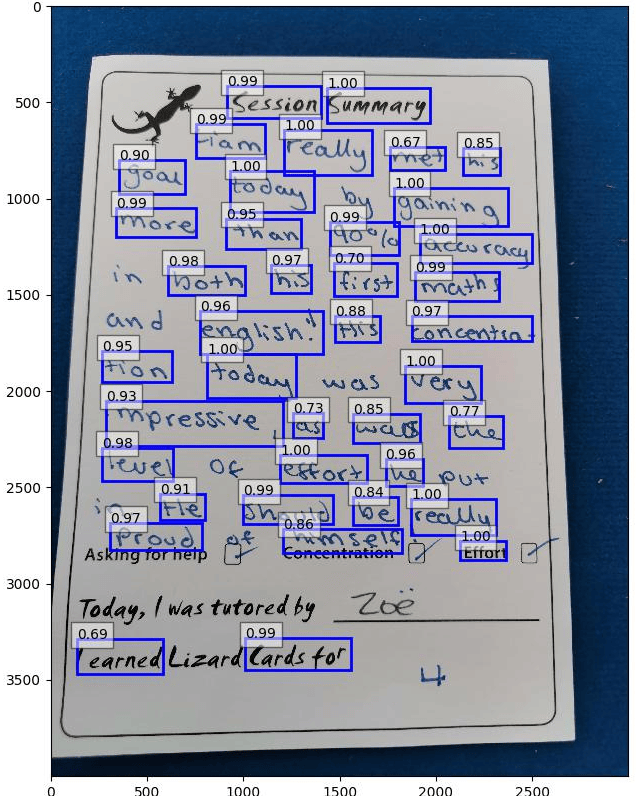 0
0.99 1.00
500
Session Summary
0.99 1.00 0.67 0.85
really met his
0.90 1.00 1.00
goal today by gaining
1000
0.99 0.95 0.99 1.00
more than 90% accuracy
0.98 0.97 0.70 0.99
in both his first maths
1500
0.96 0.88 0.97
and english! His concentra-
0.95 1.00 1.00
tion today was very
2000
0.93 0.73 0.85 0.77
impressive, as was the
0.98 1.00 0.96
level of effort he put
2500
0.91 0.99 0.84 1.00
in. He should be really
0.97 0.86 1.00
proud of himself.
Asking for help Concentration Effort
3000
Today, I was tutored by Zoë
0.69 0.99
I earned Lizard Cards for
3500
4
0 500 1000 1500 2000 2500